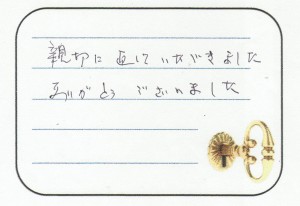 親切に直していただきました
ありがとうございました